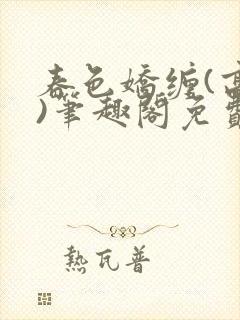 春色嬌纏(高
)筆趣閣免費
熱瓦普